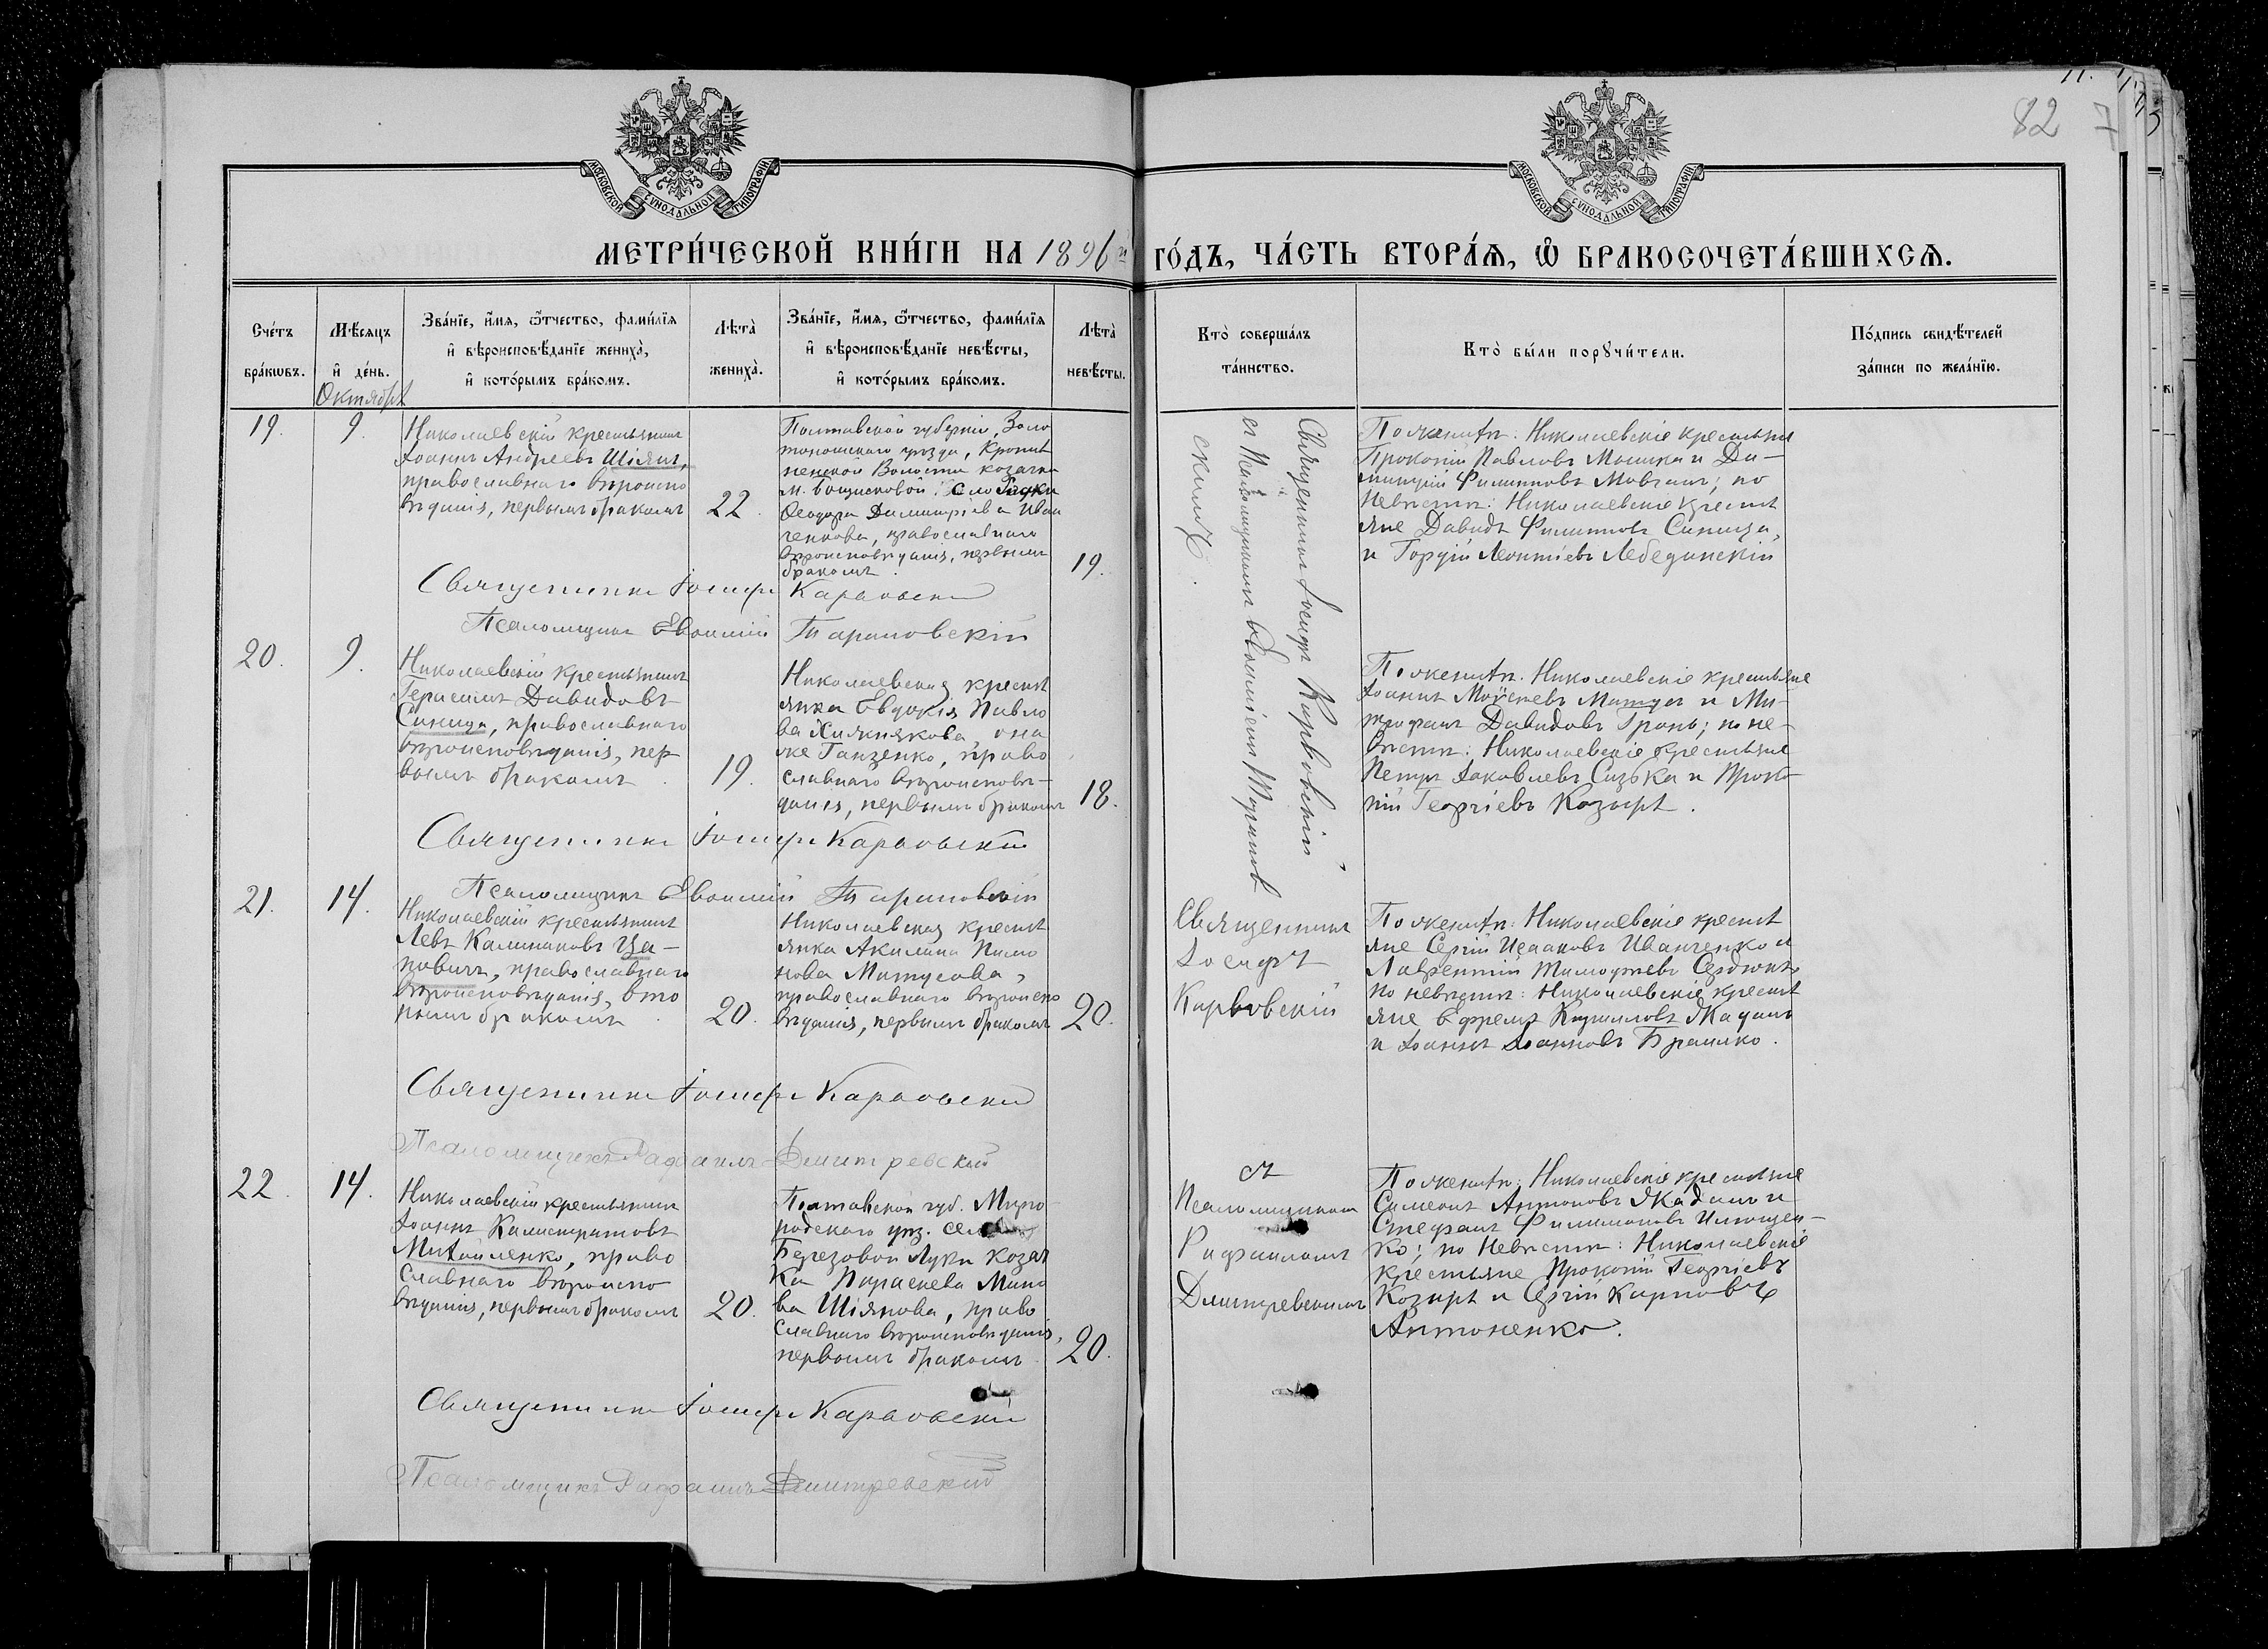 82
МОСКОВСКОЙ СѴНОДАЛЬНОЙ ТИПОГРАФІИ
МОСКОВСКОЙ СѴНОДАЛЬНОЙ ТИПОГРАФІИ
МЕТРИ́ЧЕСКОЙ КНИ́ГИ НА 1896 й ГО́ДЪ, ЧА́СТЬ ВТОРА́Ѧ, Ѽ БРАКОСОЧЕТА́ВШИХСѦ.
Сче́тъ бра́кѡвъ.
Мѣ́сяцъ и҆ де́нь.
Зва́нїе, и҆́мя, ѻ҆́тчество, фами́лїя
и҆ вѣроисповѣ́данїе жениха̀,
и҆ кото́рымъ бра́комъ.
Лѣта̀ жениха̀.
Зва́нїе, и҆́мя, ѻ҆́тчество, фами́лїя
и҆ вѣроисповѣ́данїе невѣ́сты,
и҆ кото́рымъ бра́комъ.
Лѣта̀ невѣ́сты.
Кто̀ соверша́лъ
та́инство.
Кто̀ бы́ли порꙋчи́тели.
По́дпись свидѣ́телей
за́писи по жела́нїю.
Октября
19.
9.
Николаевскій крестьянинъ
Іоаннъ Андреевъ Шіянъ,
православнаго вѣроиспо
вѣданія, первымъ бракомъ
22.
Полтавской губерніи, Золо
тоношскаго уѣзда, Кропив
ненской Волости козачка
Ѳеодора Димитріева Иван
ченкова, православнаго
вѣроисповѣданія, первымъ
бракомъ.
19.
Священникомъ Іосифъ Карвовскій
съ Псаломщикомъ Евѳиміемъ Таранов
скимъ.
По женихѣ: Николаевскіе крестьяне
Прокопій Павловъ Мошка и Ди-
митрій Филипповъ Мовчанъ; по
невѣстѣ: Николаевскіе крестья
яне Давидъ Филипповъ Синица,
и Гордій Леонтіевъ Лебединскій
Священникъ Іосифъ Карвовскій
Псаломщикъ Евѳимій Тарановскій
20.
9.
Николаевскій крестьянинъ
Герасимъ Давидовъ
Синица, православнаго
вѣроисповѣданія, пер
вымъ бракомъ.
19.
Николаевская крестья
янка Евдокія Павло
ва Хижнякова, она
же Ганзенко, право
славнаго вѣроисповѣ-
данія, первымъ бракомъ
18.
По женихѣ: Николаевскіе крестьяне
Іоаннъ Моѵсеевъ Матусъ и Ми-
трофанъ Давидовъ Гронь; по не-
вѣстѣ: Николаевскіе крестьяне
Петръ Іаковлевъ Сизька и Проко
пій Георгіевъ Козырь.
Священникъ Іосифъ Карвовскій
Псаломщикъ Евѳимій Тарановскій
21.
14.
Николаевскій крестьянинъ
Левъ Калиниковъ Ца-
повичъ, православнаго
вѣроисповѣданія, вто
рымъ бракомъ.
20.
Николаевская крестья
янка Акилина Пимо
нова Матусова,
православнаго вѣроиспо
вѣданія, первымъ бракомъ
20.
Священникъ
Іосифъ
Карвовскій
По женихѣ: Николаевскіе крестья
яне Сергій Исааковъ Иванченко и
Лаврентій Тимоѳеевъ Сердюкъ
по невѣстѣ: Николаевскіе крестья
яне Ефремъ Кирилловъ Жаданъ
и Іоаннъ Іоанновъ Брашко.
Священникъ Іосифъ Карвовскій
Псаломщикъ Рафаилъ Дмитревскій
22.
14.
Николаевскій крестьянинъ
Іоаннъ Калистратовъ
Михайленко, право
славнаго вѣроиспо
вѣданія, первымъ бракомъ
20.
Полтавской губ. Мирго
родскаго уѣз.
Березовой Луки козач
ка Параскева Мино
ва Шіянова, право
славнаго вѣроисповѣданія,
первымъ бракомъ.
20.
съ
Псаломщикомъ
Рафаиломъ
Дмитревскимъ
По женихѣ: Николаевскіе крестьяне
Симеонъ Антоновъ Жаданъ и
Стефанъ Филимоновъ Ильющен-
ко; по невѣстѣ: Николаевскіе
крестьяне Прокопій Георгіевъ
Козырь и Сергій Карповъ
Антоненко.
Священникъ Іосифъ Карвовскій
Псаломщикъ Рафаилъ Дмитревскій